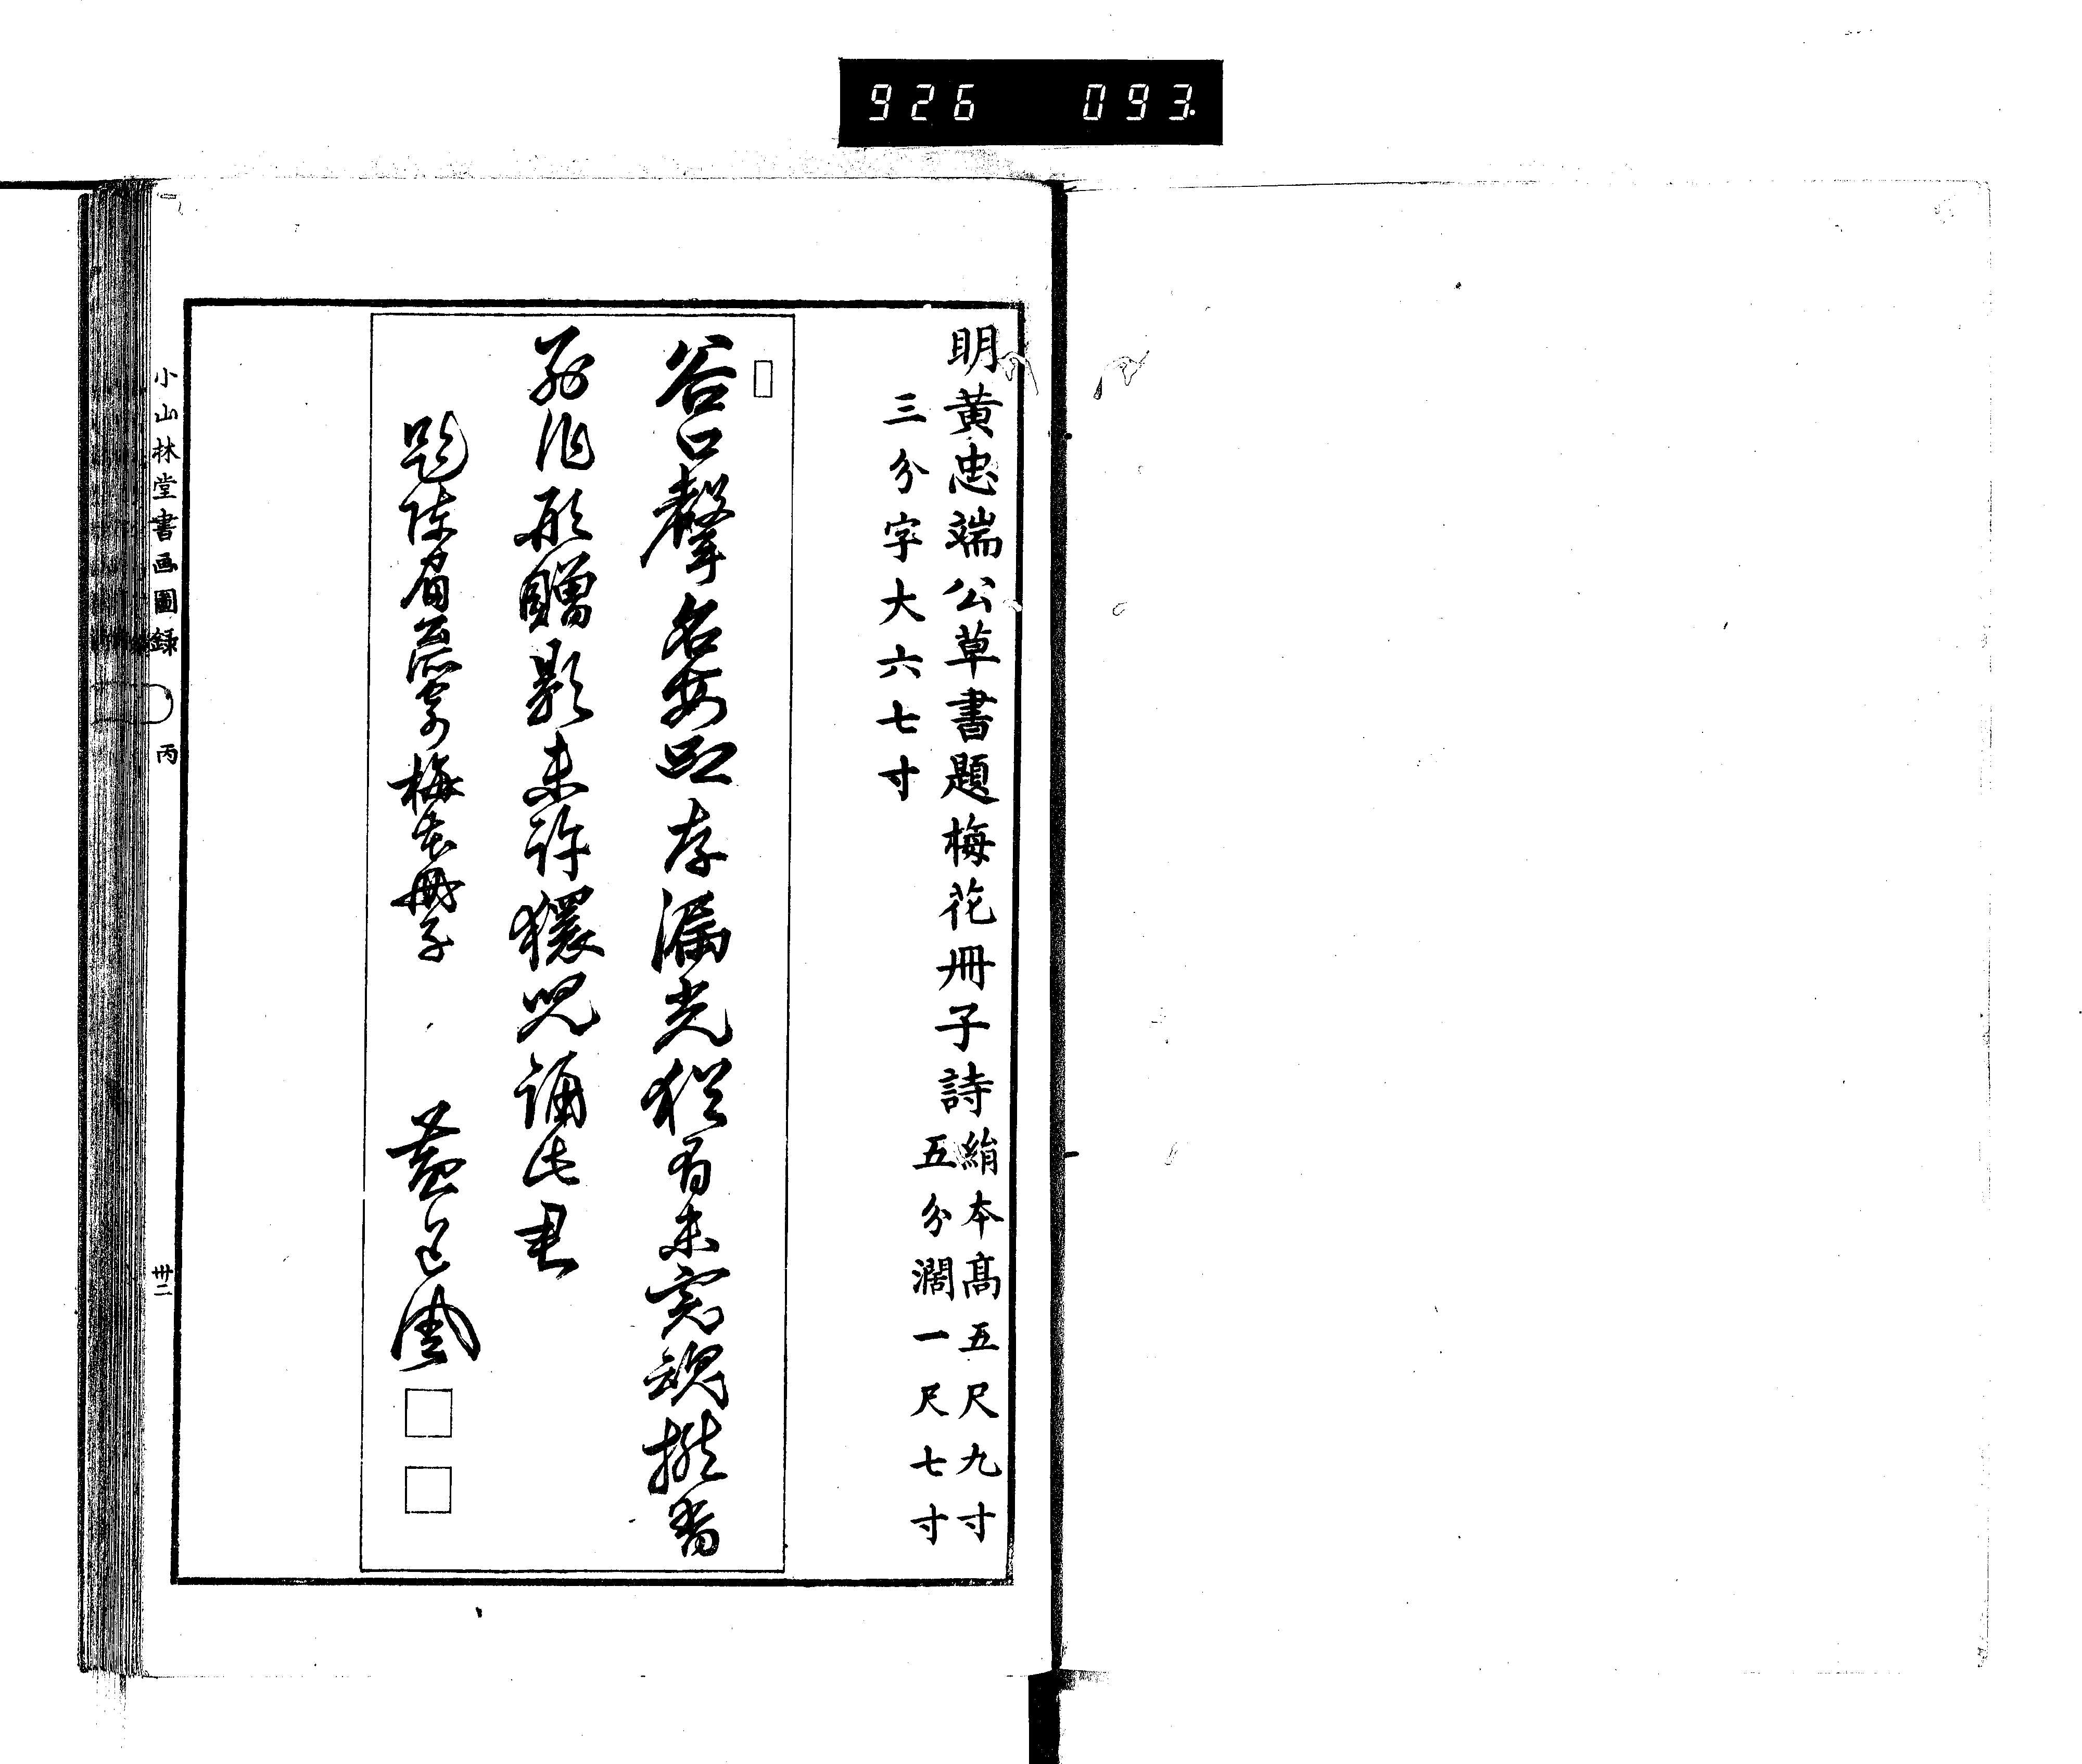 926 093.
明黃忠端公草書題梅花冊子詩
絹本高五尺九寸
五分濶一尺七寸
三分字大六七寸
谷口聲名安所存漏光猶有未完魂拋香
形贈影未許獧兒誦此君
題陳眉公寫梅花冊子
黃道周
小山林堂書画圖録 丙 卅二